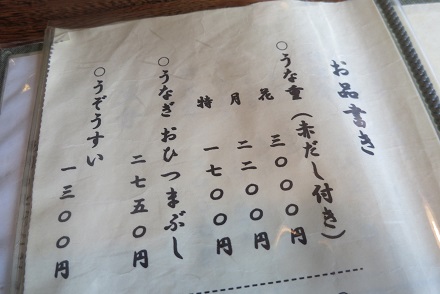 お品書き
○うな重(赤だし付き)
花 三〇〇〇円
月 二二〇〇円
特 一七〇〇円
○うなぎおひつまぶし
二七五〇円
○うぞうすい
一三〇〇円